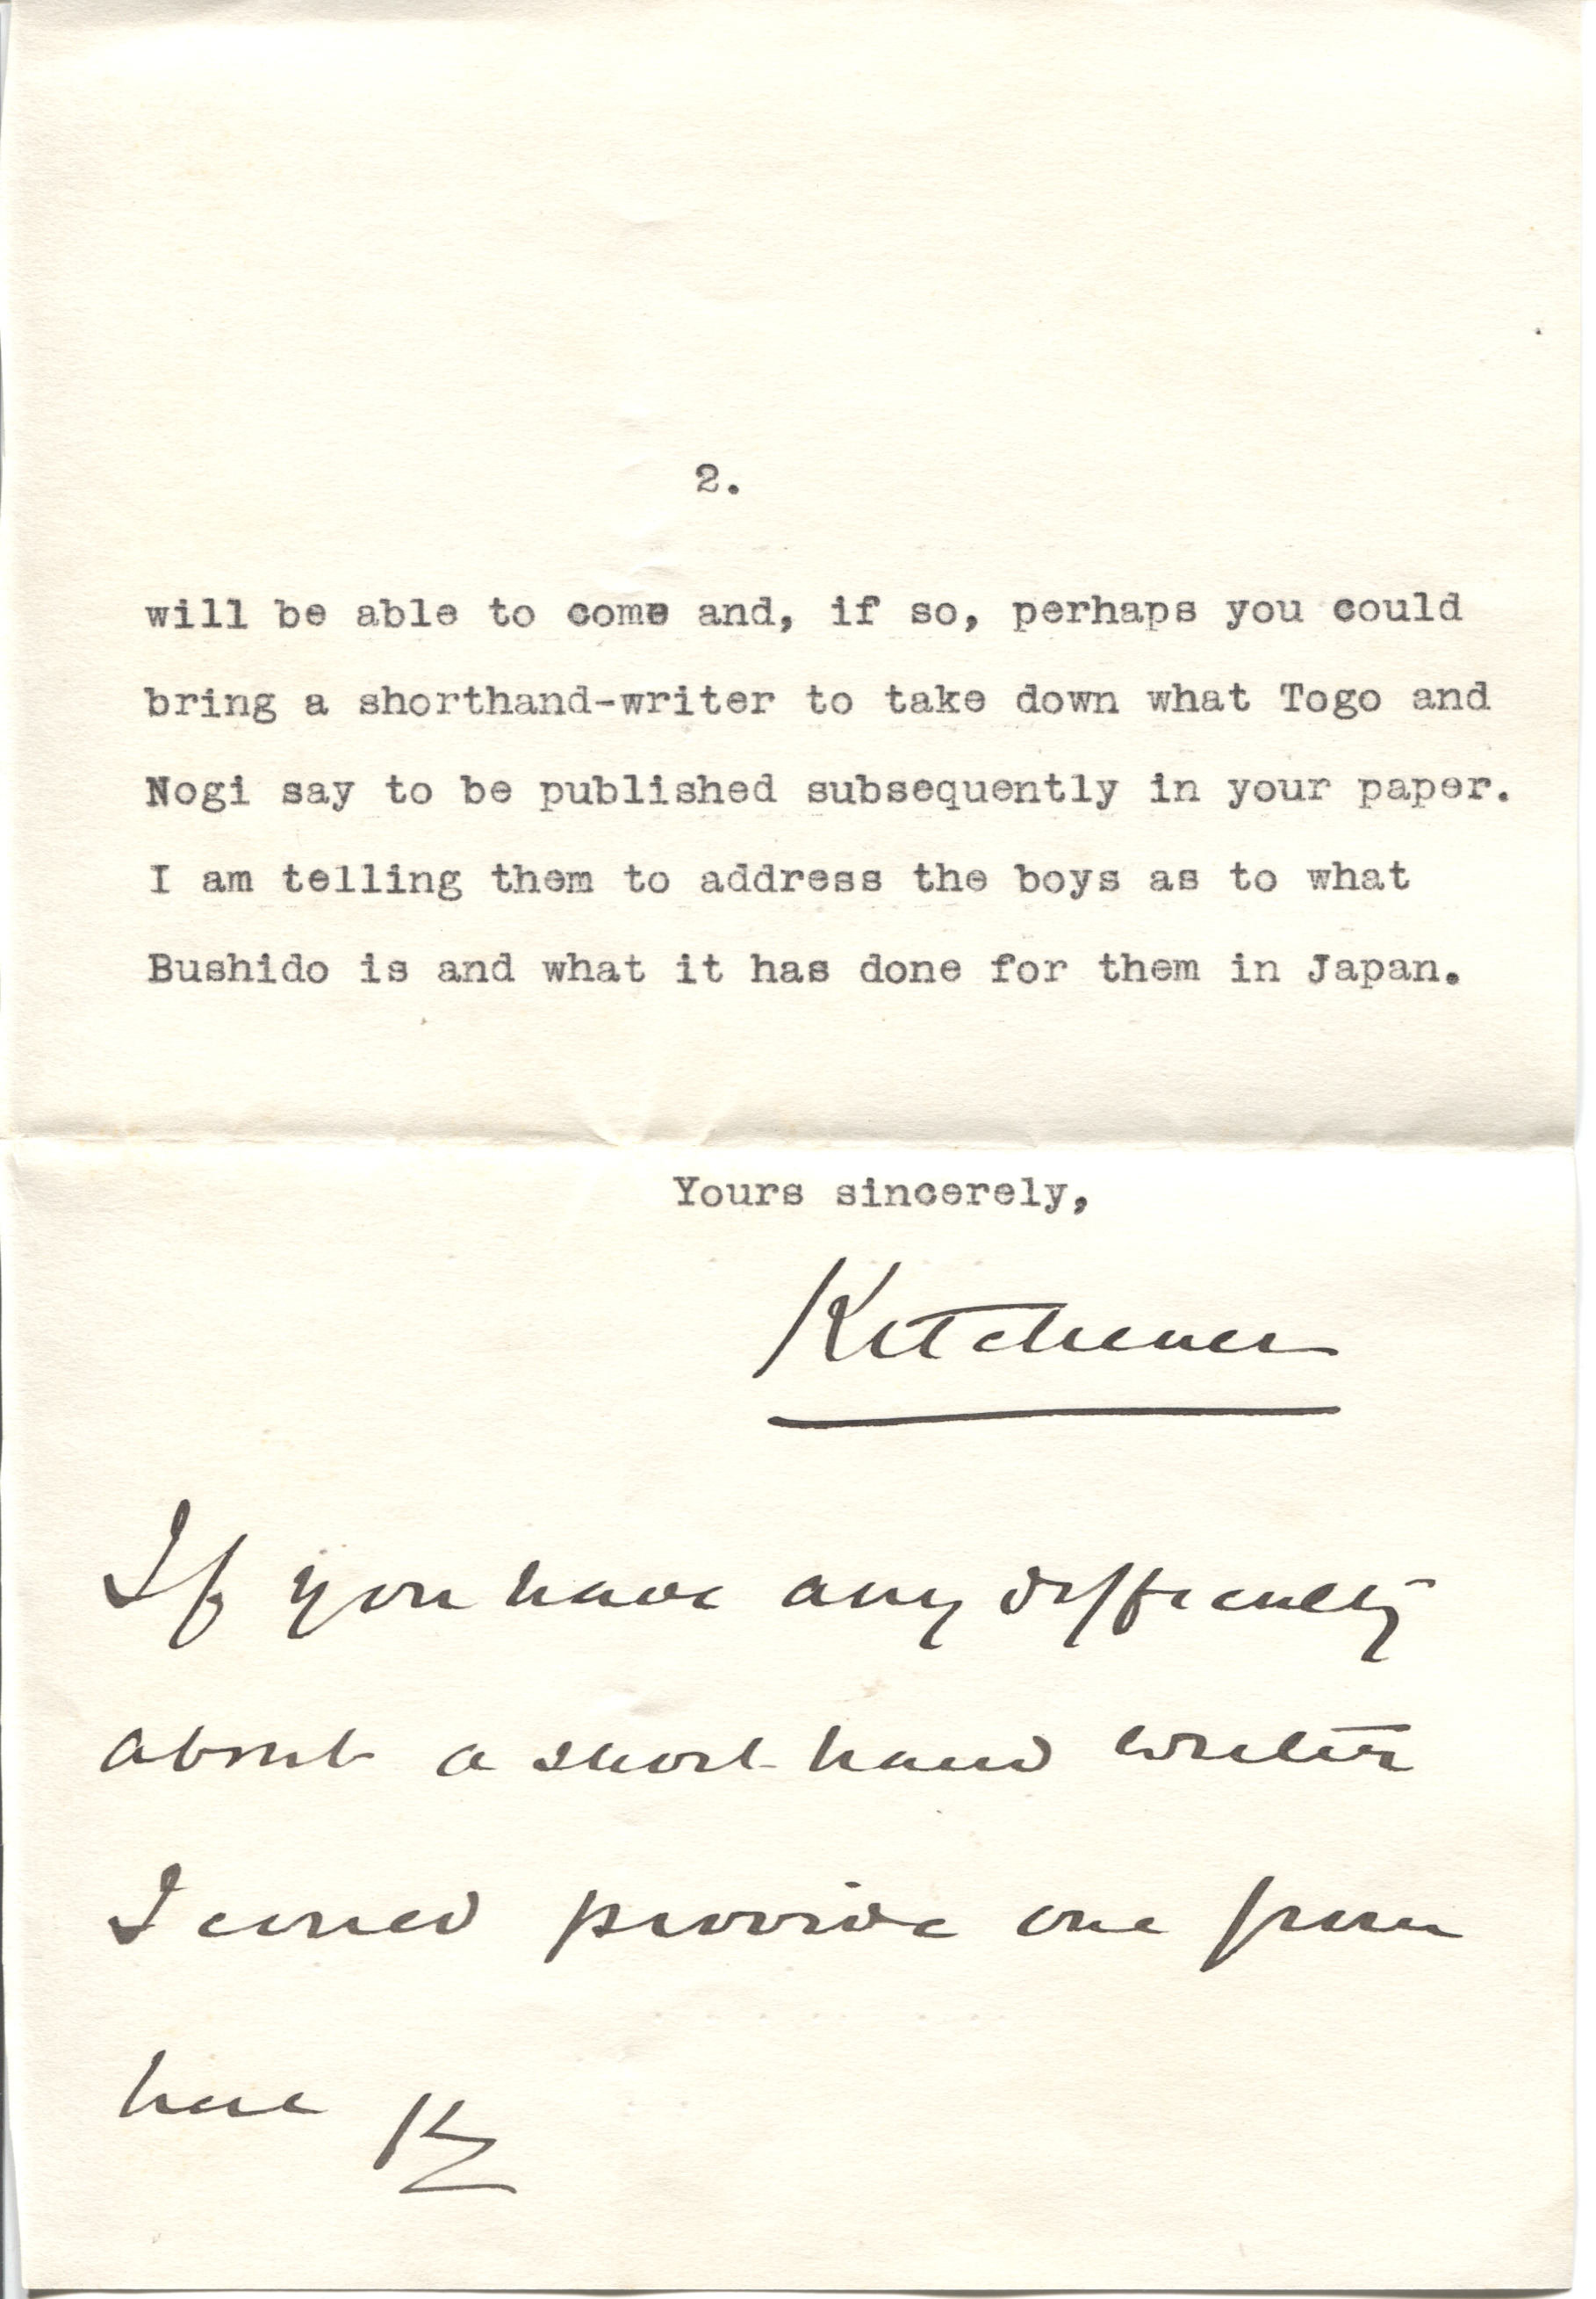 2.
will be able to come and, if so, perhaps you could
bring a shorthand-writer to take down what Togo and
Nogi say to be published subsequently in your paper.
I am telling them to address the boys as to what
Bushido is and what it has done for them in Japan.
Yours sincerely,
Kitchener
If you have any difficulty
about a short hand writer
I could provide one from
here K